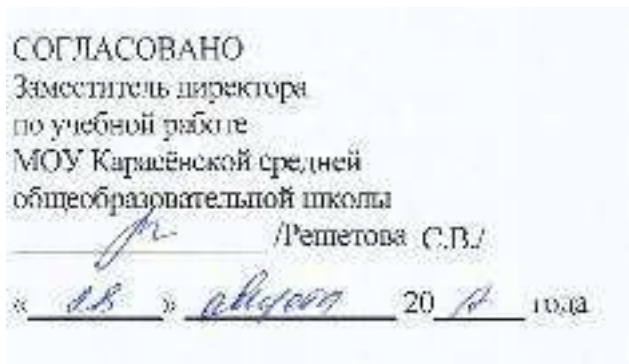 СОГЛАСОВАНО
Заместитель директора
по учебной работе
МОУ Карасёвской средней
общеобразовательной школы
/Решетова С.В./
« » август 20 года